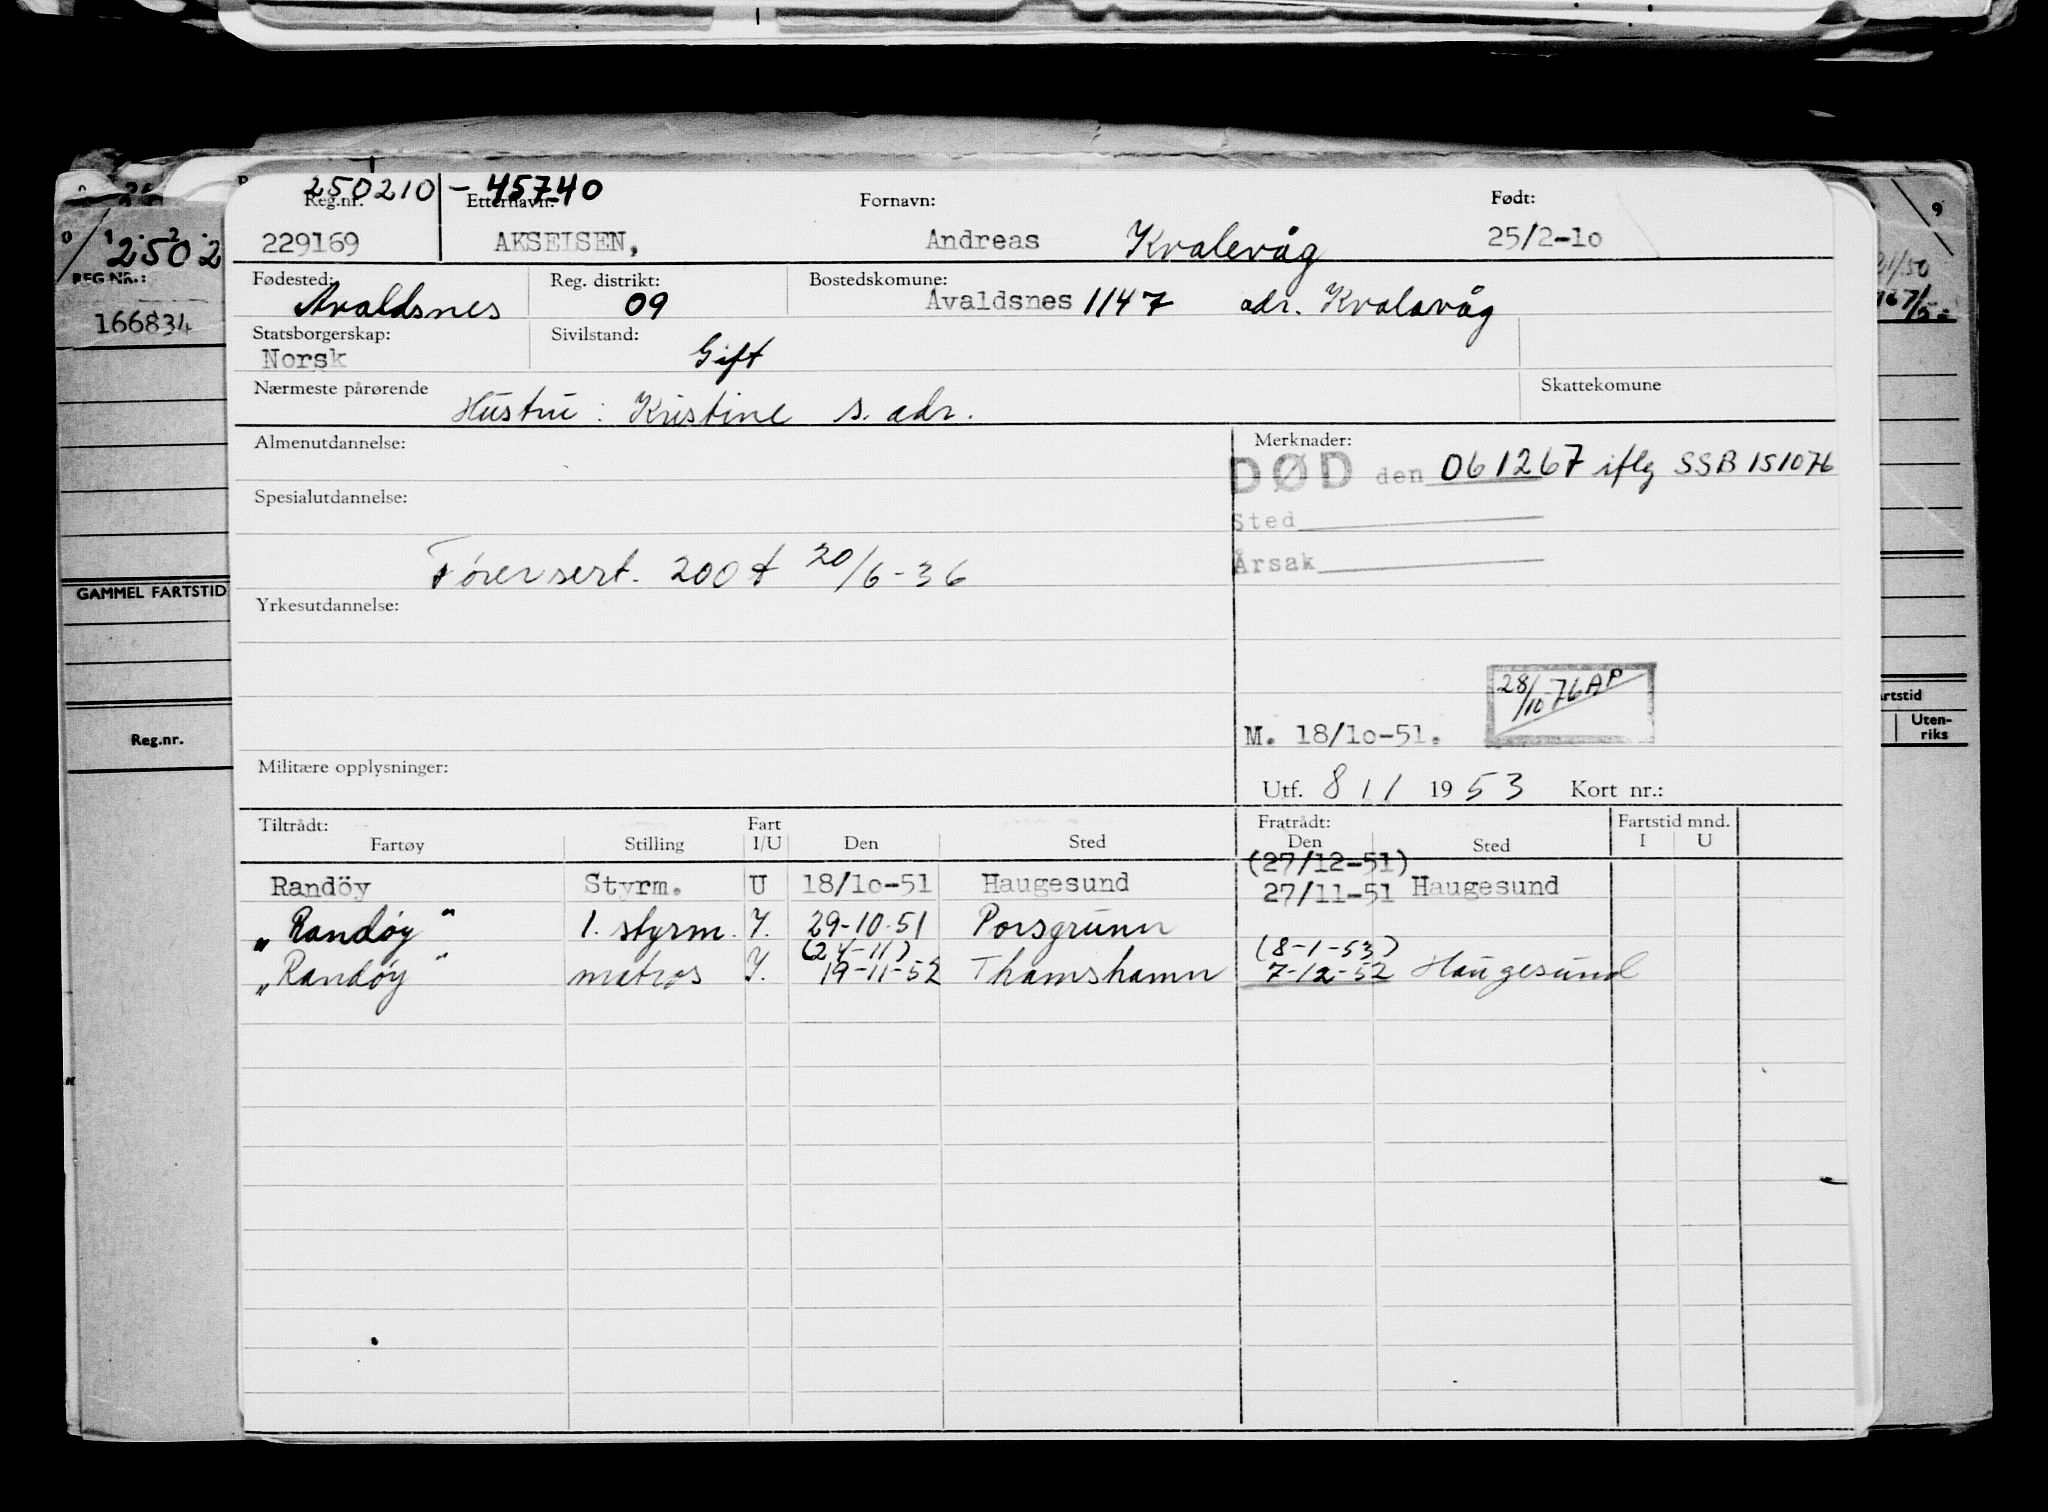 250210 - 45740
Reg.nr. Etternavn: Fornavn: Født:
229169 AKSELSEN, Andreas Kvalevåg 25/2-10
Fødested: Reg. distrikt: Bostedskomune:
Avaldsnes 09 Avaldsnes 1147 adr. Kvalavåg
Statsborgerskap: Sivilstand:
Norsk Gift
Nærmeste pårørende Skattekomune
Hustru: Kristine s. adr.
Almenutdannelse: Merknader:
DØD den 061267 iflg SSB 151076
Spesialutdannelse:
Sted
Førersert. 200 t 20/6-36
Årsak
Yrkesutdannelse:
28/10-76 AP
M. 18/10-51.
Militære opplysninger:
Utf. 8 1/1 1953 Kort nr.:
Tiltrådt: Fart Fratrådt: Fartstid mnd.
Fartøy Stilling I/U Den Sted Den Sted I U
(27/12-51)
Randöy Styrm. U 18/10-51 Haugesund 27/11-51 Haugesund
"Randøy" 1. styrm. I. 29-10-51 Porsgrunn
(24-11) (8-1-53)
"Randøy" matros I. 19-11-52 Thamshamn 7-12-52 Haugesund
2502
REG.NR.:
166834
GAMMEL FARTSTID
Reg.nr.
9
rtstid
Uten-
riks